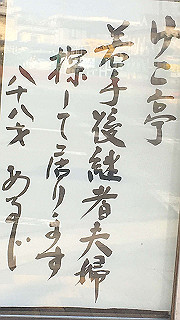 けご亭
若手後継者夫婦
探して居ります
八十八才 あるじ